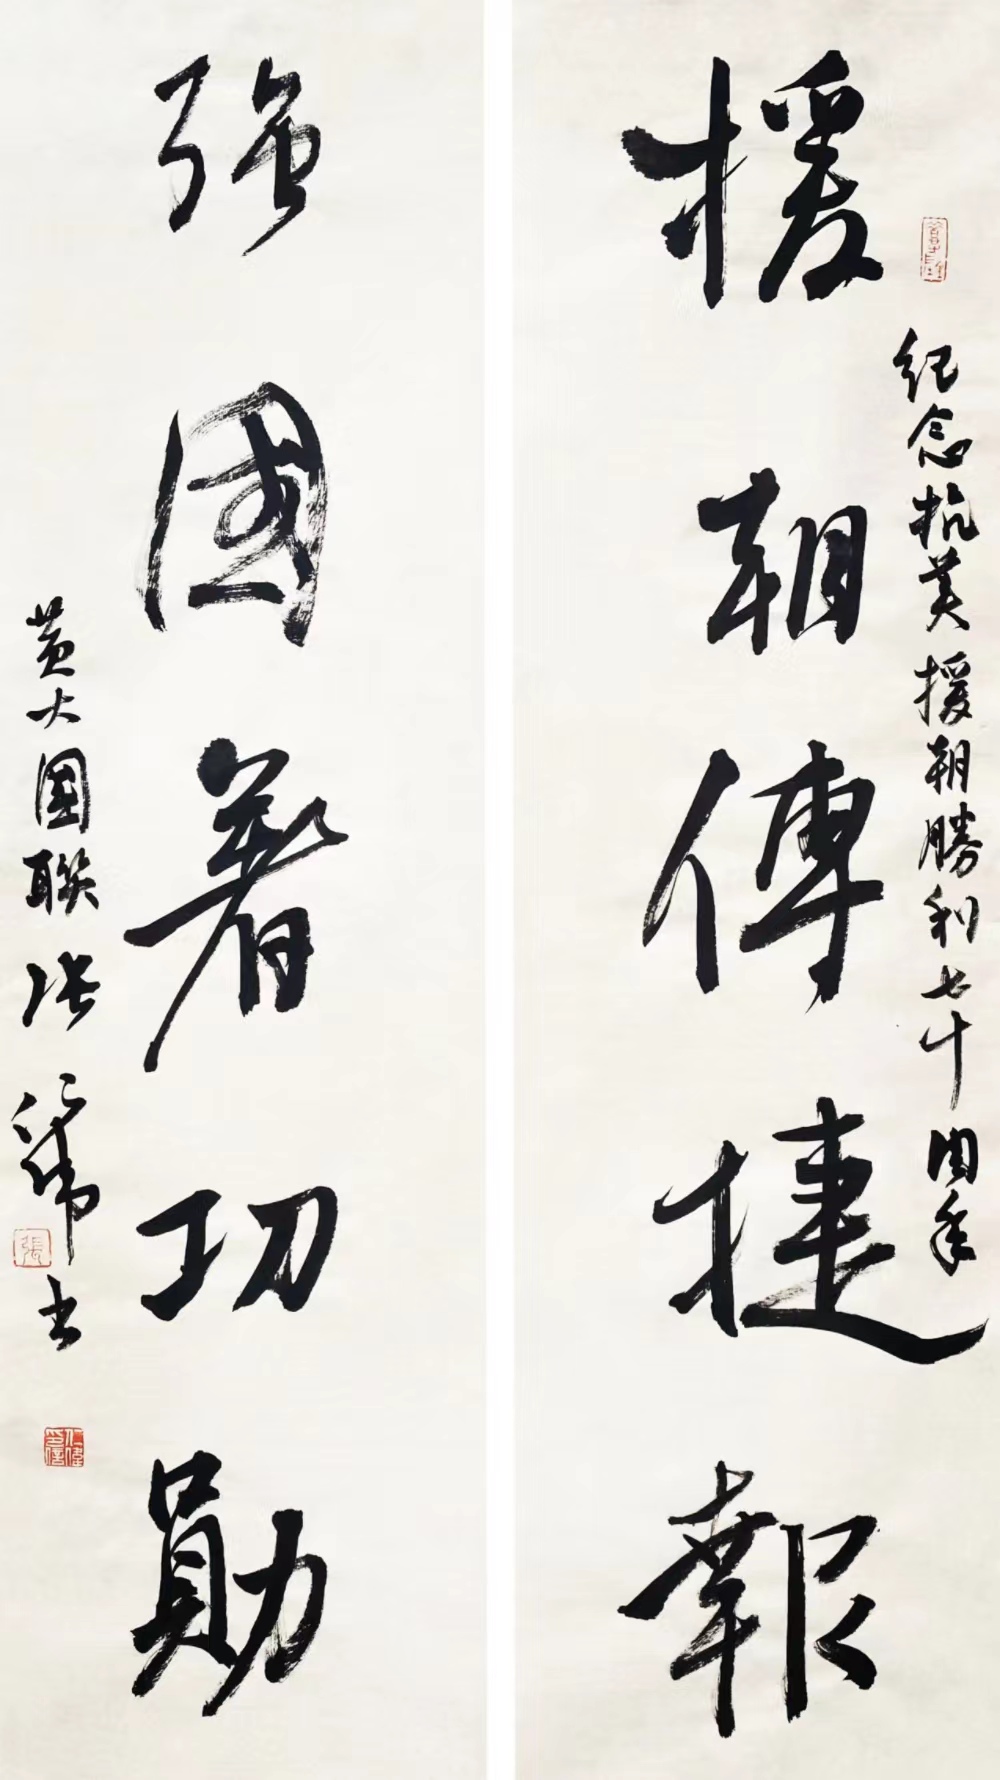 紀念抗美援朝勝利七十周年
援朝傳捷報
強國著功勛
黃大國聯 張仁偉書
張